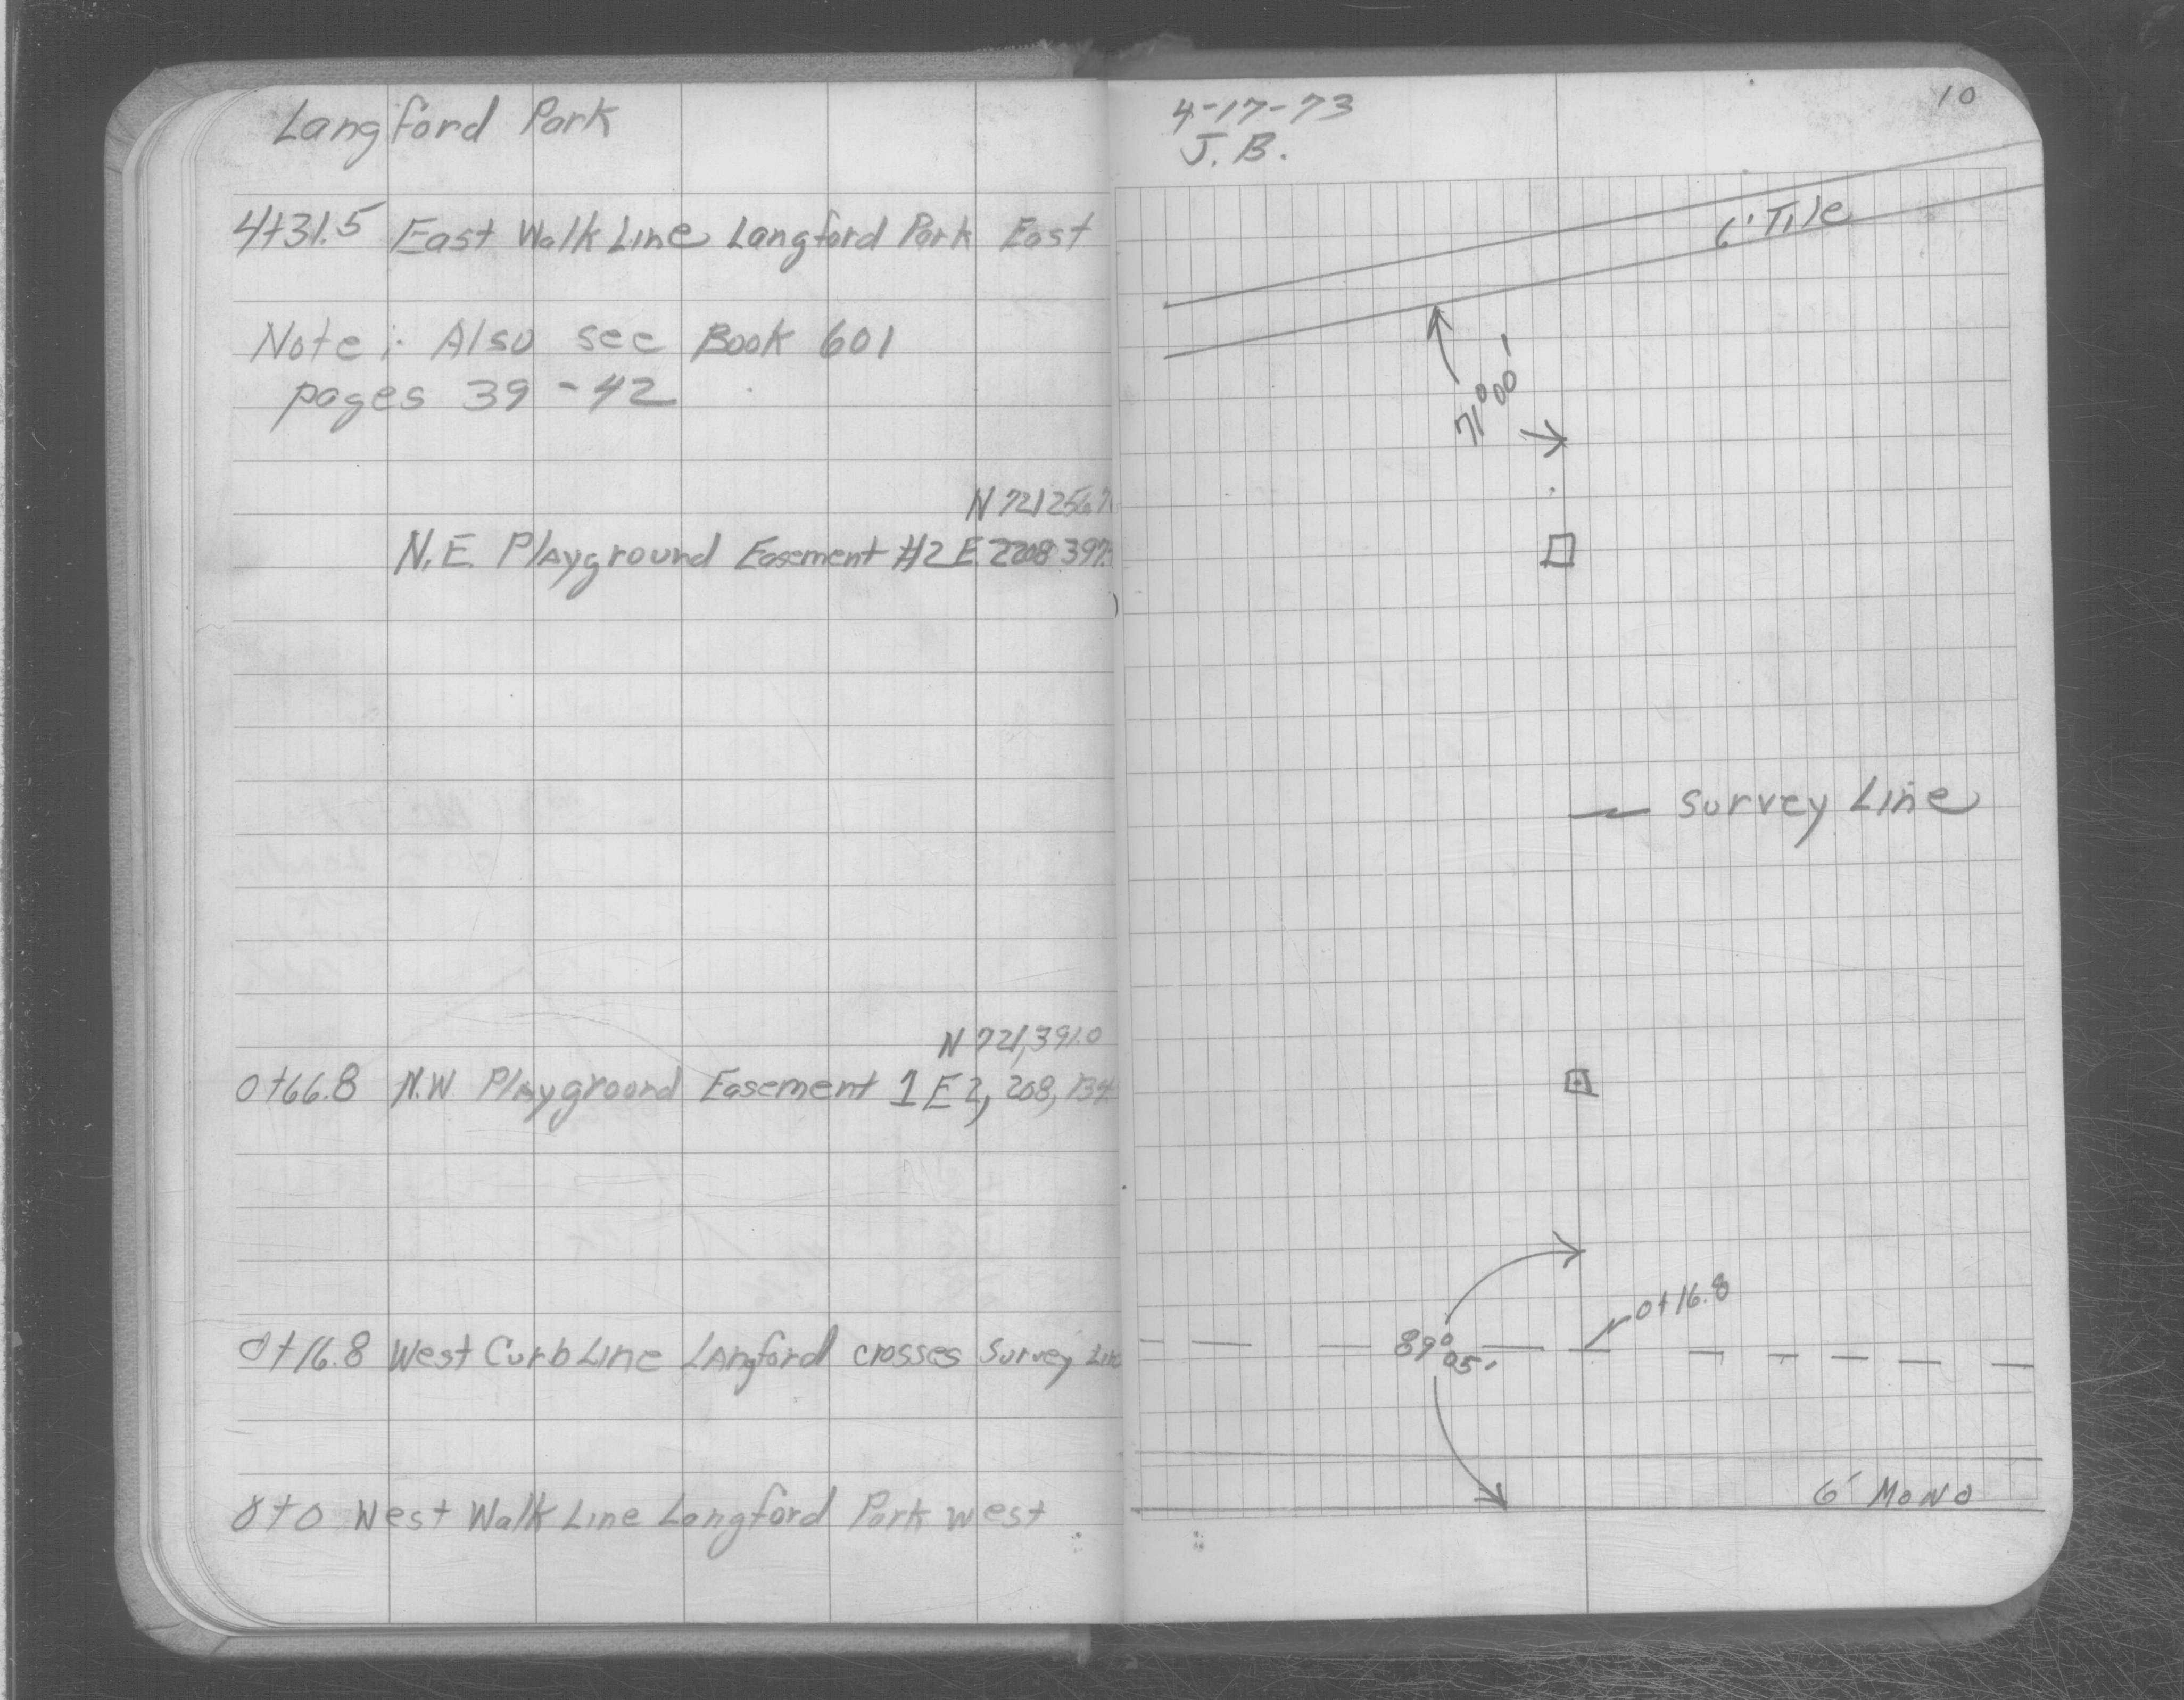 Langford Park
4+31.5 East Walk Line Langford Park East
Note: Also see Book 601
pages 39-42
N 721256.7
N.E. Playground Easement #2 E. 2208 397.
N 721,391.0
0+66.8 N.W. Playground Easement 1 E 2, 208, 134.
0+16.8 West Curb Line Langford crosses Survey Line
0+0 West Walk Line Langford Park west
4-17-73
J. B.
10
6' Tile
71°00'
Survey Line
0+16.8
89°05'
6' Mono